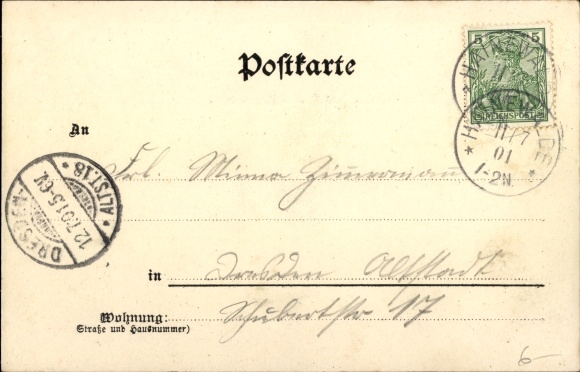 Postkarte
5
REICHSPOST
HAINEWALDE
11/7
01
1-2N.
An
Frl. Minna Zimmermann
DRESDEN
ALTST. 18
12.7.01.5-6V.
in Dresden Altstadt
Wohnung: Schubertstr 17
(Straße und Hausnummer)
6-